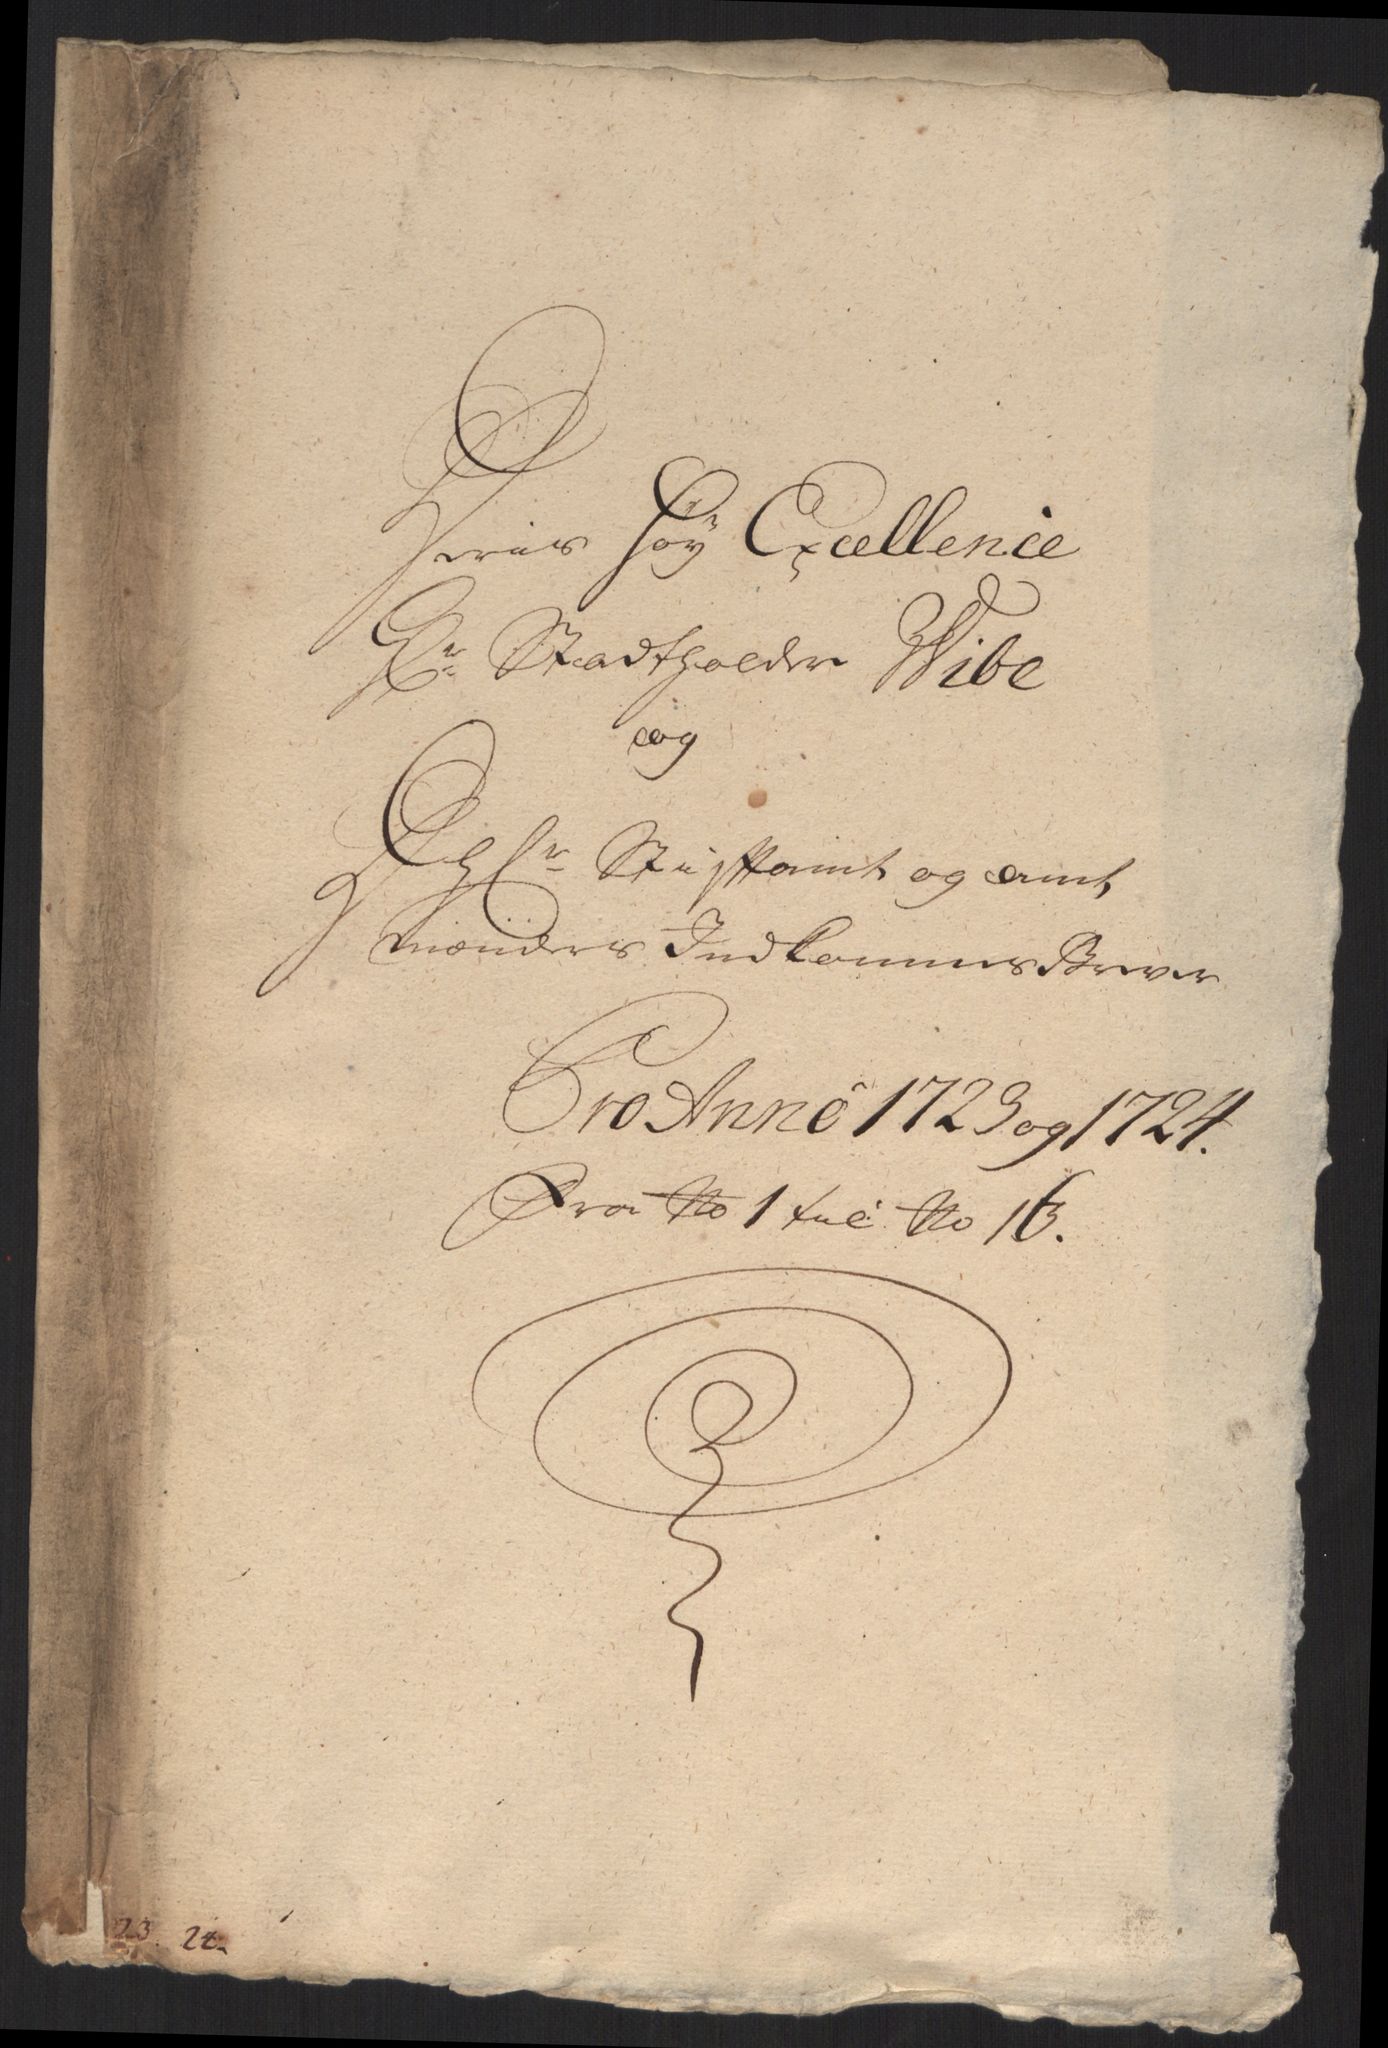 Hans Høÿ Excellence
Hr Stadtholder Wibe
og
Hr Stiftamt og amt
mænders Indkomne Brever
Pro Anno 1723 og 1724.
Fra No 1 till No 16.
23. 24.